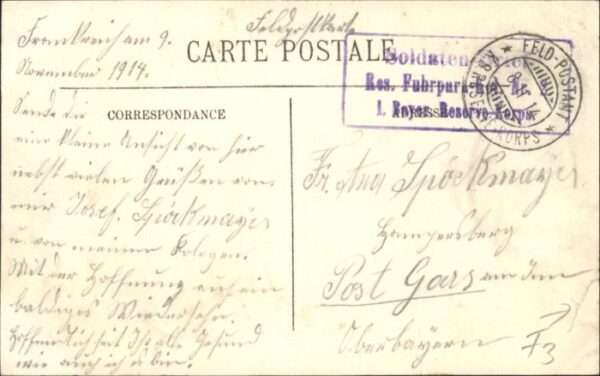 Feldpostkarte
Frankreich am 9.
November 1914.
CARTE POSTALE
Soldaten
Res. Fuhrpark
1. Bayer. Reserve-Korps.
FELD-POSTAMT
RESERVE-KORPS
CORRESPONDANCE
Sende dir
eine kleine Ansicht von hier
nebst vielen Grüßen von
mir Josef Spöckmayer
u. von meiner Kolegen.
Mit der Hoffnung auf ein
baldiges Wiedersehn
Hoffentlich seit Ihr alle Gesund
wie auch ich bin.
Fr. Spöckmayer
Hampersberg
Post Gars am Inn
Oberbayern